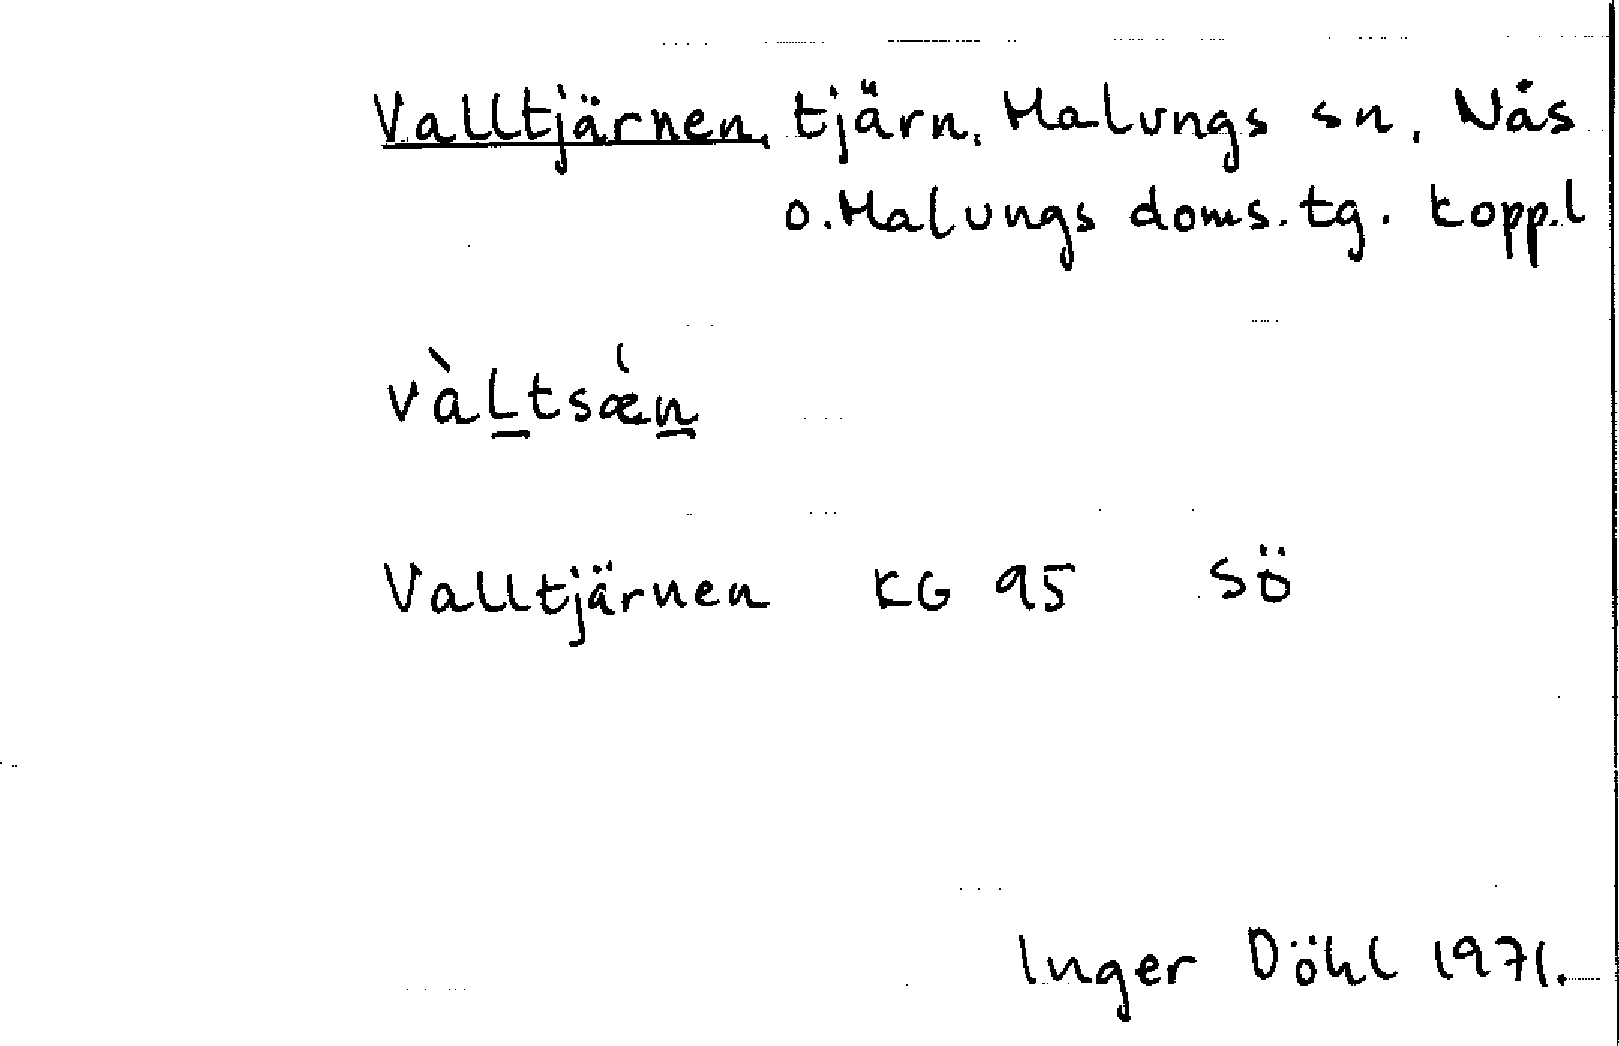 Valltjärnen, tjärn, Malungs sn, Nås
o. Malungs doms. tg. Kopp.l
vàLtsǽn
Valltjärnen KG 95 SÖ
Inger Döhl 1971.